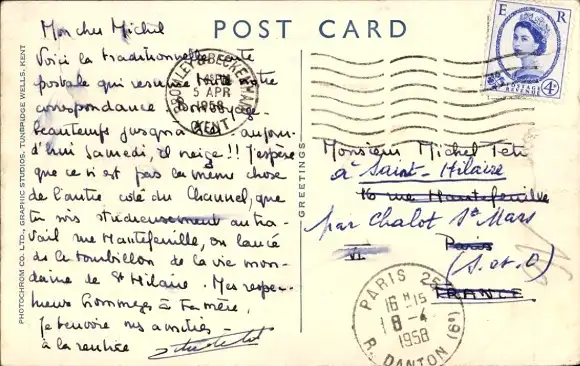 POST CARD
Mon cher Michel
Voici la traditionnelle carte
postale qui resume toute notre
correspondance. Bon voyage.
beau temps jusqu'à aujour-
d'hui Samedi, il neige !! J'espère
que ce n'est pas la même chose
de l'autre coté du Channel, que
tu vis studieusement au tra-
vail rue Hautefeuille, ou lancé
ds le tourbillon de la vie mon-
daine de St Hilaire. Mes respec-
tueux hommages à ta mère,
Je t'envoie mes amitiés -
à la rentrée
PHOTOCHROM CO. LTD., GRAPHIC STUDIOS, TUNBRIDGE WELLS, KENT
GREETINGS
BROMLEY & BECKENHAM
5 APR
1958
KENT
E R
4D
POSTAGE
REVENUE
Monsieur Michel
à Saint-Hilaire
16 rue Hautefeuille
par Chalot St Mars
Paris
VI
(S. et O)
FRANCE
PARIS 25
16 H 15
8-4
1958
R. DANTON (6e)